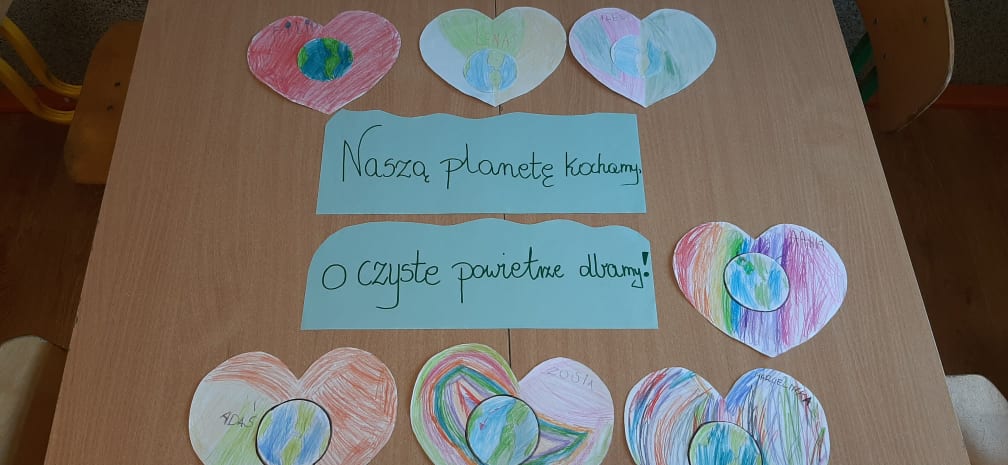 LENA
Naszą planetę kochamy,
O czyste powietrze dbamy!
ADAŚ
ZOSIA